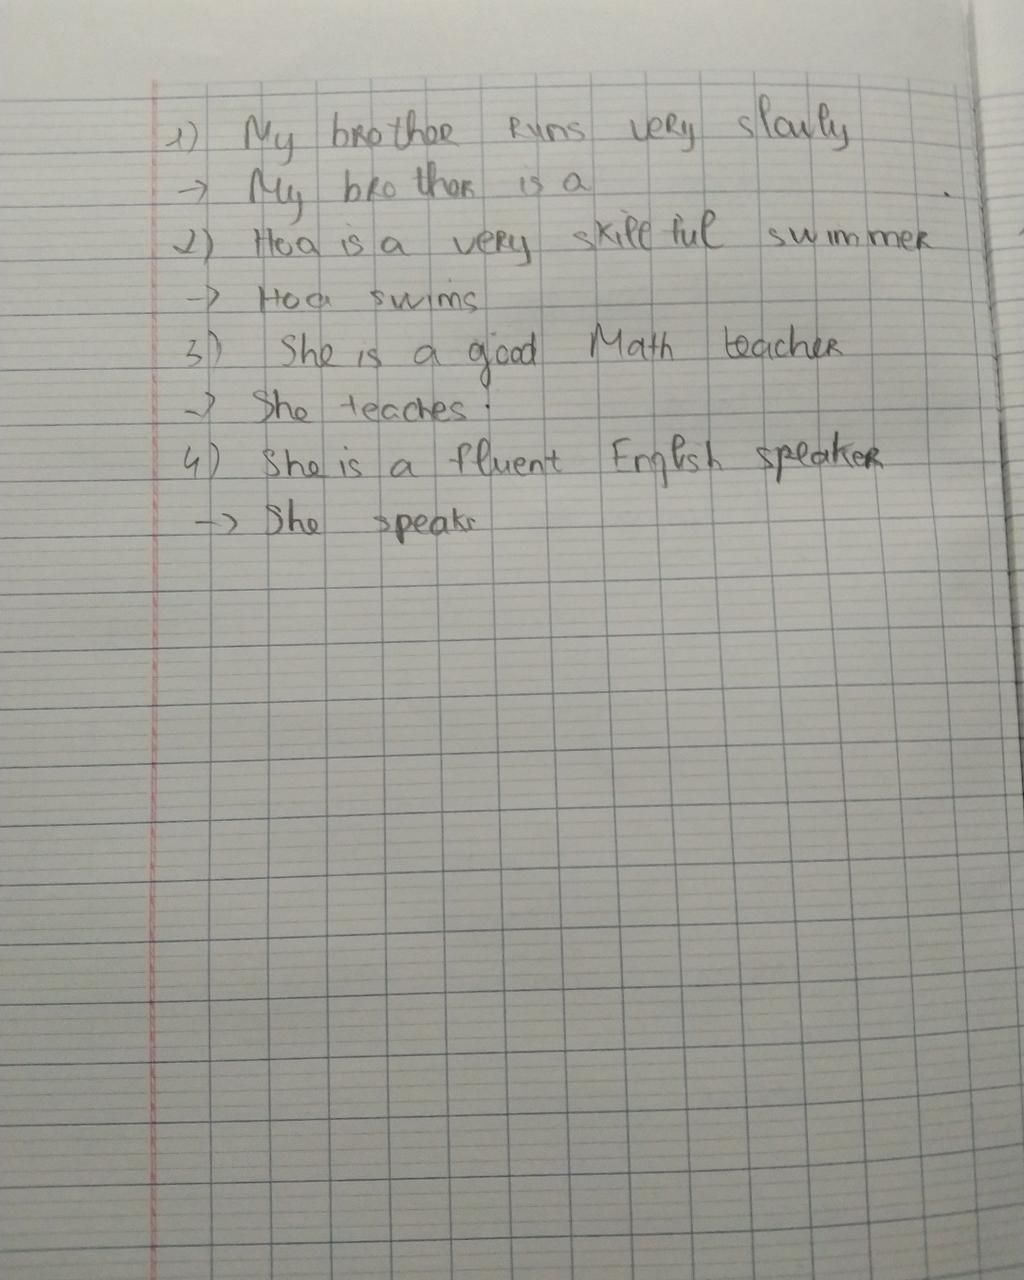 1) My brother runs very slowly
→ My brother is a
2) Hoa is a very skillful swimmer
→ Hoa swims
3) She is a good Math teacher
→ She teaches
4) She is a fluent English speaker
→ She speaks